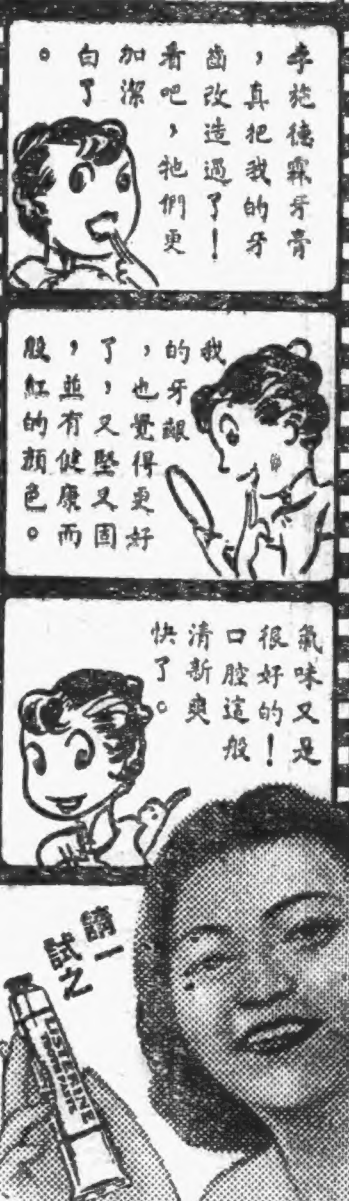 李施德霖牙膏
，真把我的牙
齒改造過了！
看吧，牠們更
加潔
白了
。
我
的牙齦
，也覺得更好
了，又堅又固
，並有健康而
殷紅的顏色。
氣味又是
很好的！
口腔這般
清新爽
快了。
請一
試之
LISTERINE
TOOTH PASTE